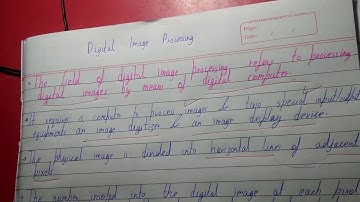 Page :
Date : / /
Digital Image Processing
• The field of digital image processing refers to processing
digital images by means of digital computer.
• It requires a computer to process images & two special input/output
equipments an image digitizer & an image display device.
• The physical image is divided into horizontal lines of adjacent
pixels.
• The number inserted into the digital image at each pixel